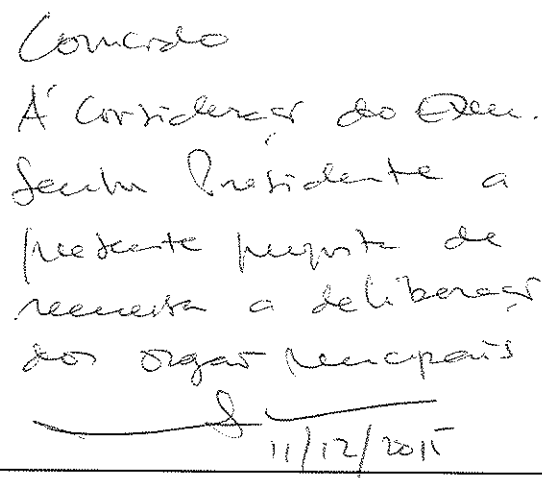 Concordo
À Consideração do Exm.
Senhor Presidente a
presente proposta de
remessa a deliberação
dos orgãos municipais
11/12/2015